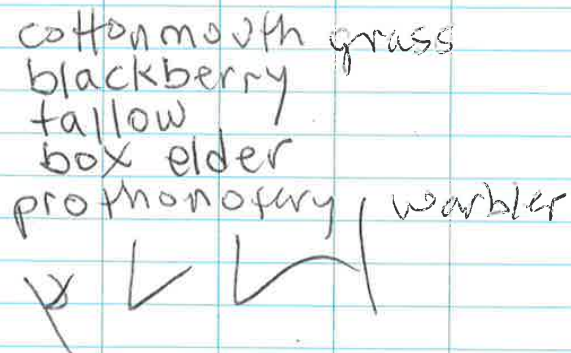 cottonmouth grass
blackberry
tallow
box elder
prothonotary warbler